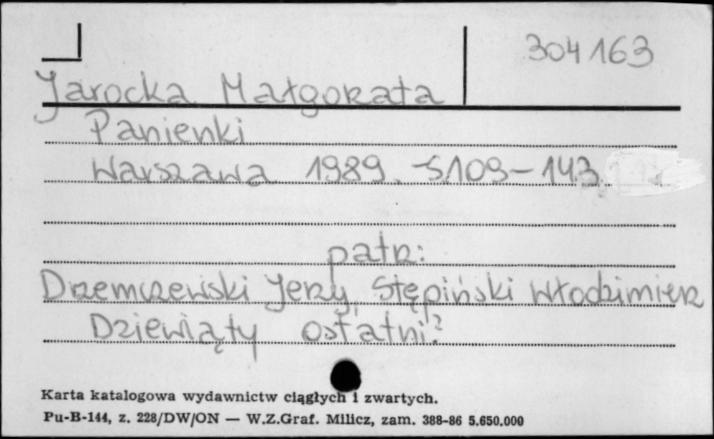 304163
Jarocka Małgorzata
Panienki
Warszawa 1989. S.109-143.
patrz:
Drzemczewski Jerzy, Stępiński Włodzimierz
Dziewiąty ostatni?
Karta katalogowa wydawnictw ciągłych i zwartych.
Pu-B-144, z. 228/DW/ON — W.Z.Graf. Milicz, zam. 388-86 5.650.000